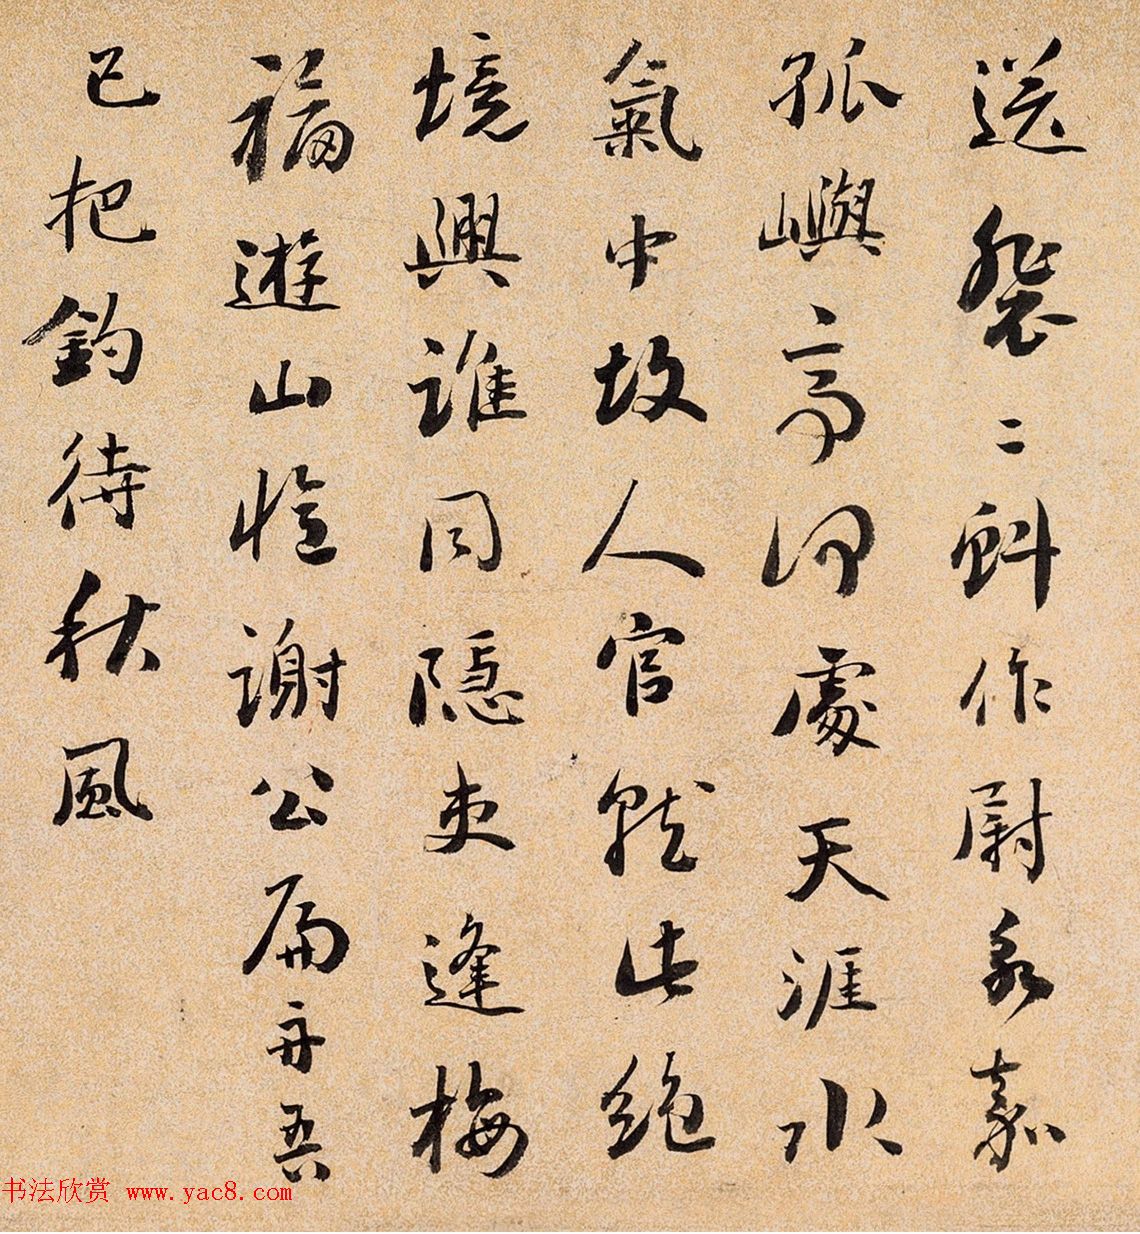 送裴二虯作尉永嘉
孤嶼亭何處天涯水
氣中故人官就此絕
境興誰同隱吏逢梅
福遊山憶謝公扁舟吾
已把釣待秋風
书法欣赏 www.yac8.com